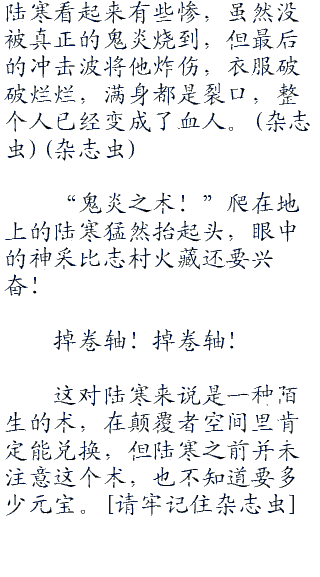 陆寒看起来有些惨，虽然没
被真正的鬼炎烧到，但最后
的冲击波将他炸伤，衣服破
破烂烂，满身都是裂口，整
个人已经变成了血人。(杂志
虫)(杂志虫)
“鬼炎之术！”爬在地
上的陆寒猛然抬起头，眼中
的神采比志村火藏还要兴
奋！
掉卷轴！掉卷轴！
这对陆寒来说是一种陌
生的术，在颠覆者空间里肯
定能兑换，但陆寒之前并未
注意这个术，也不知道要多
少元宝。[请牢记住杂志虫]